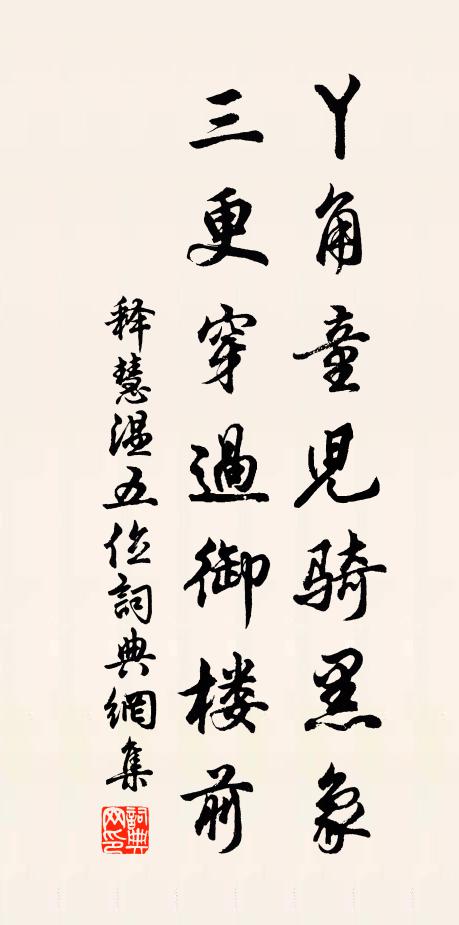 丫角童児骑黑象
三更穿過御楼前
释慧温五位詞典網集
詞典网印